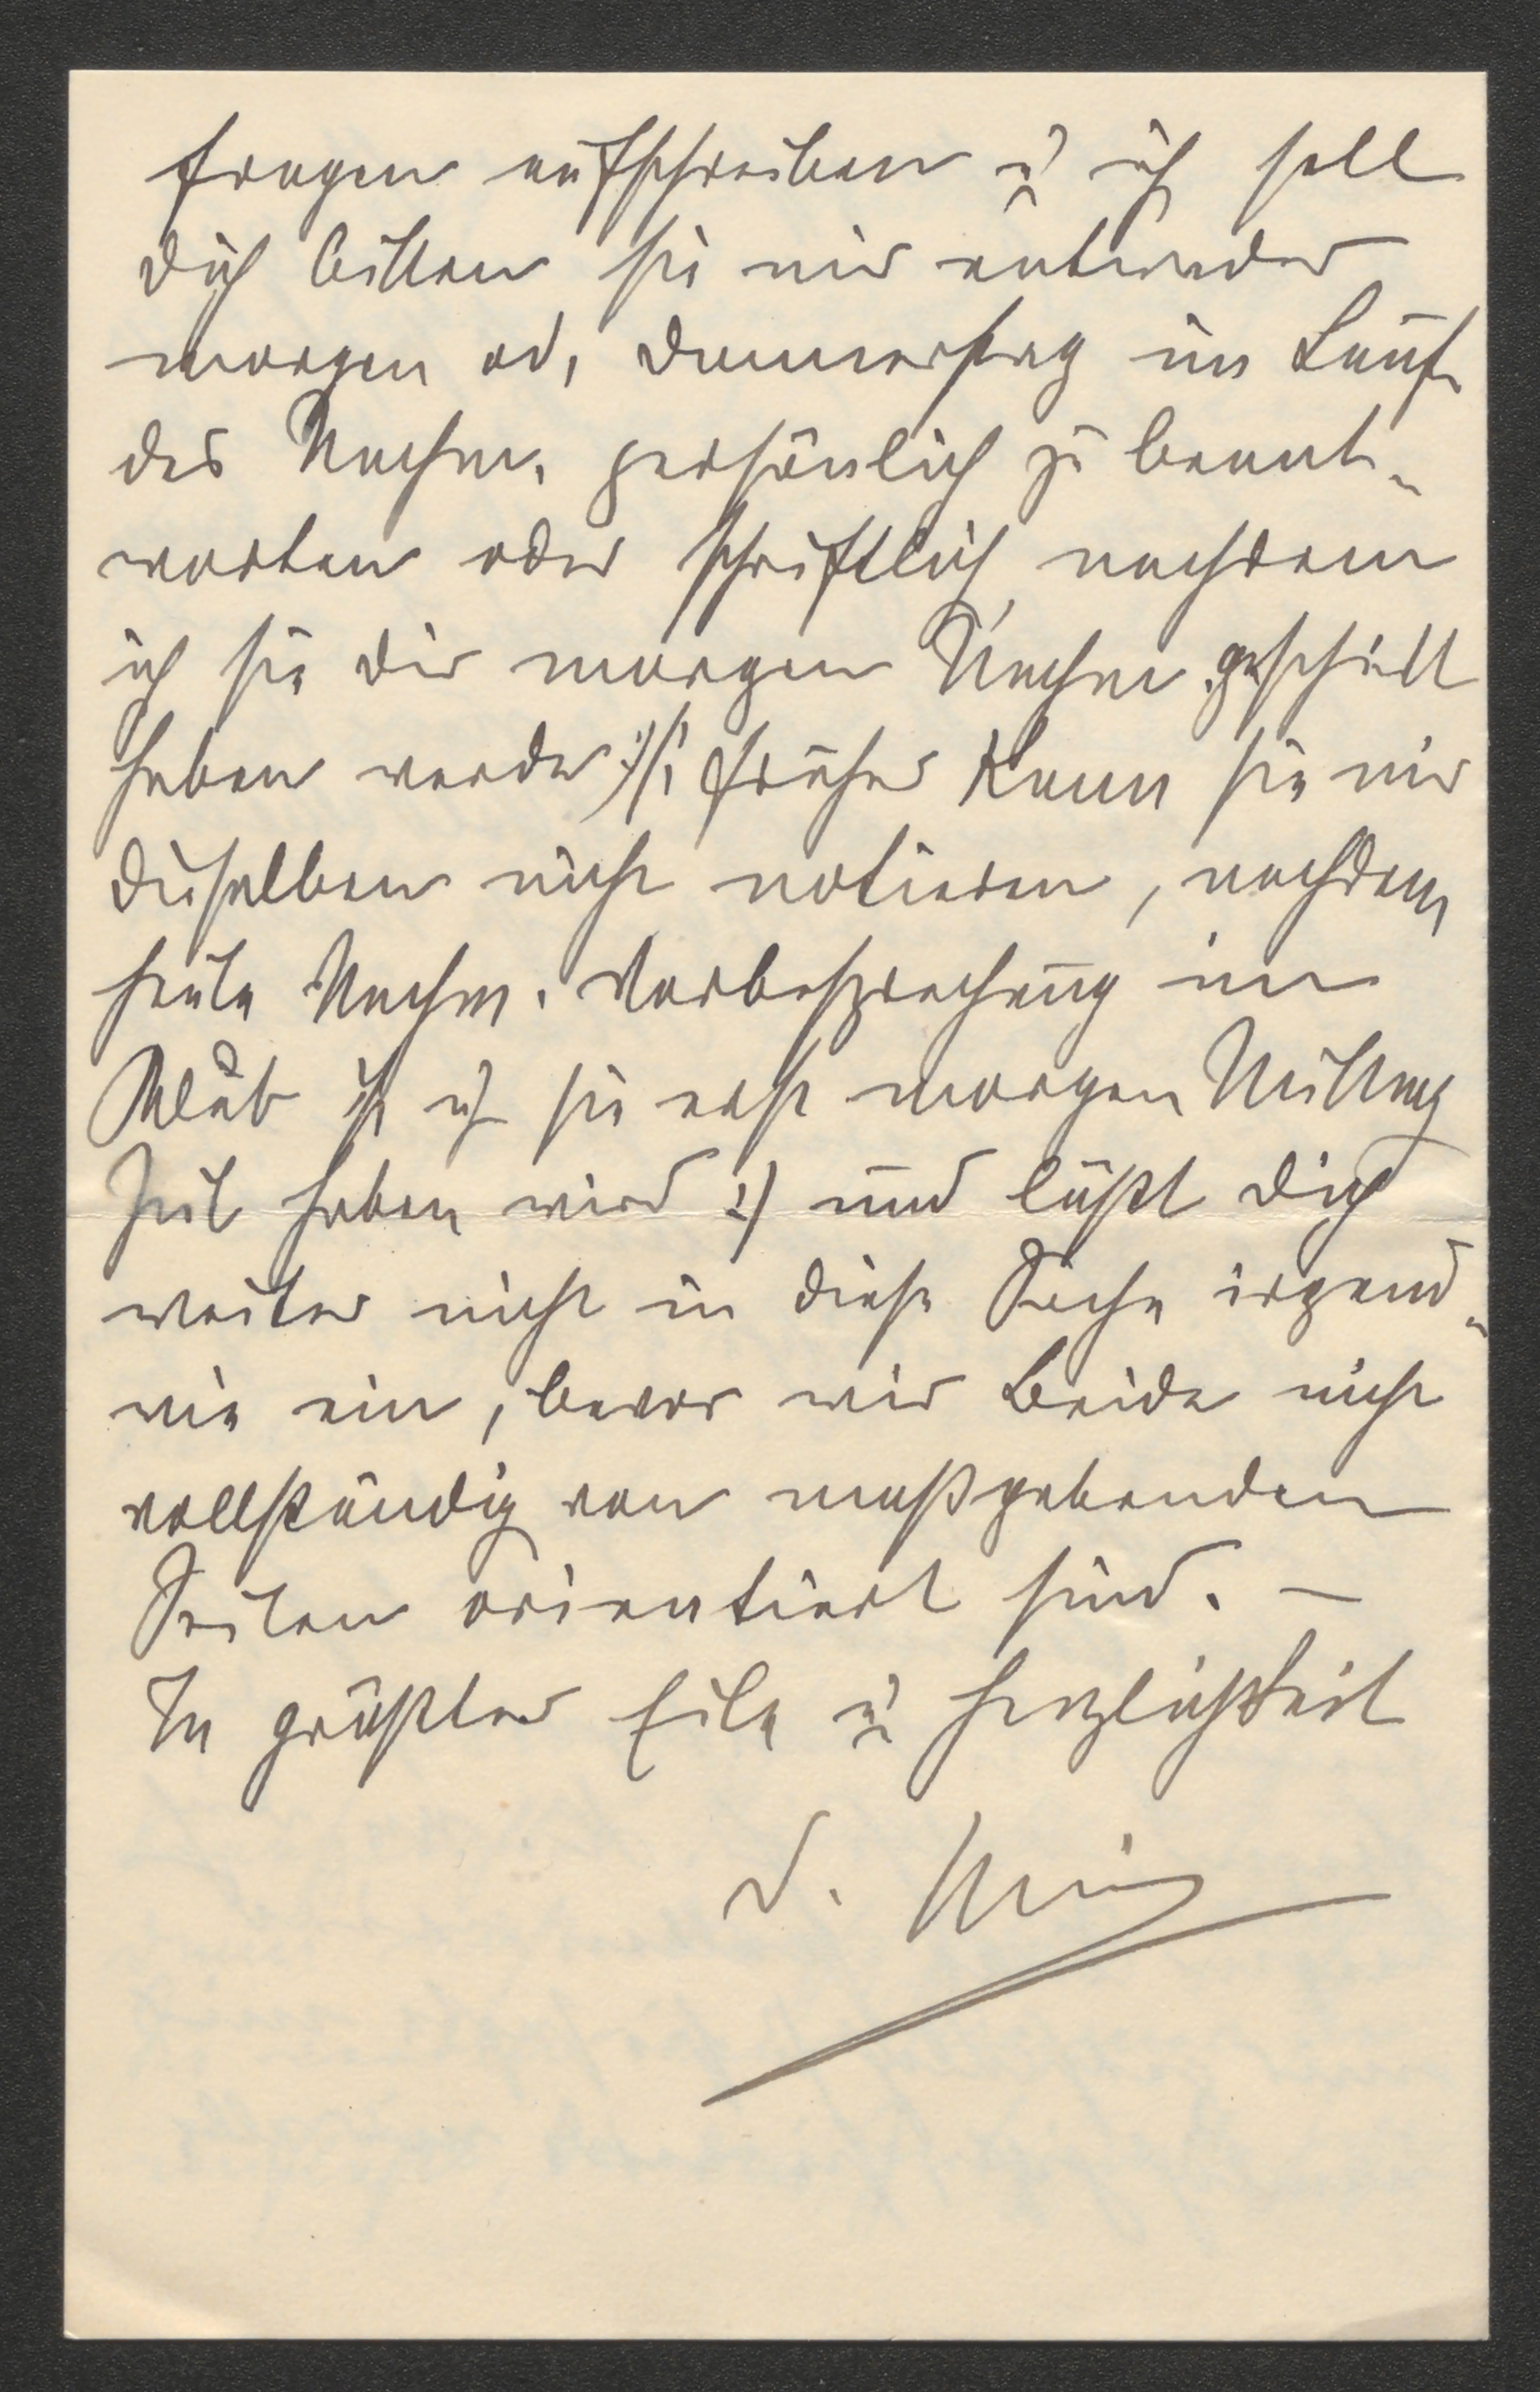 Fragen aufschreiben u. ich soll
Dich bitten sie mir entweder
morgen od. Donnerstag im Lauf
des Nachm. persönlich zu beant-
worten oder schriftlich nachdem
ich sie Dir morgen Nachm. geschickt
haben werde früher kann sie mir
dieselben nicht notieren, nachdem
heute Nachm. Vorbesprechung im
Klub ist u. sie erst morgen Mittag
Zeit haben wird :/ und läßt Dich
weiter nicht in diese Sache irgend-
wie ein, bevor wir Beide nicht
vollständig von maßgebenden
Seiten orientiert sind. —
In größter Eile u. Herzlichkeit
D.